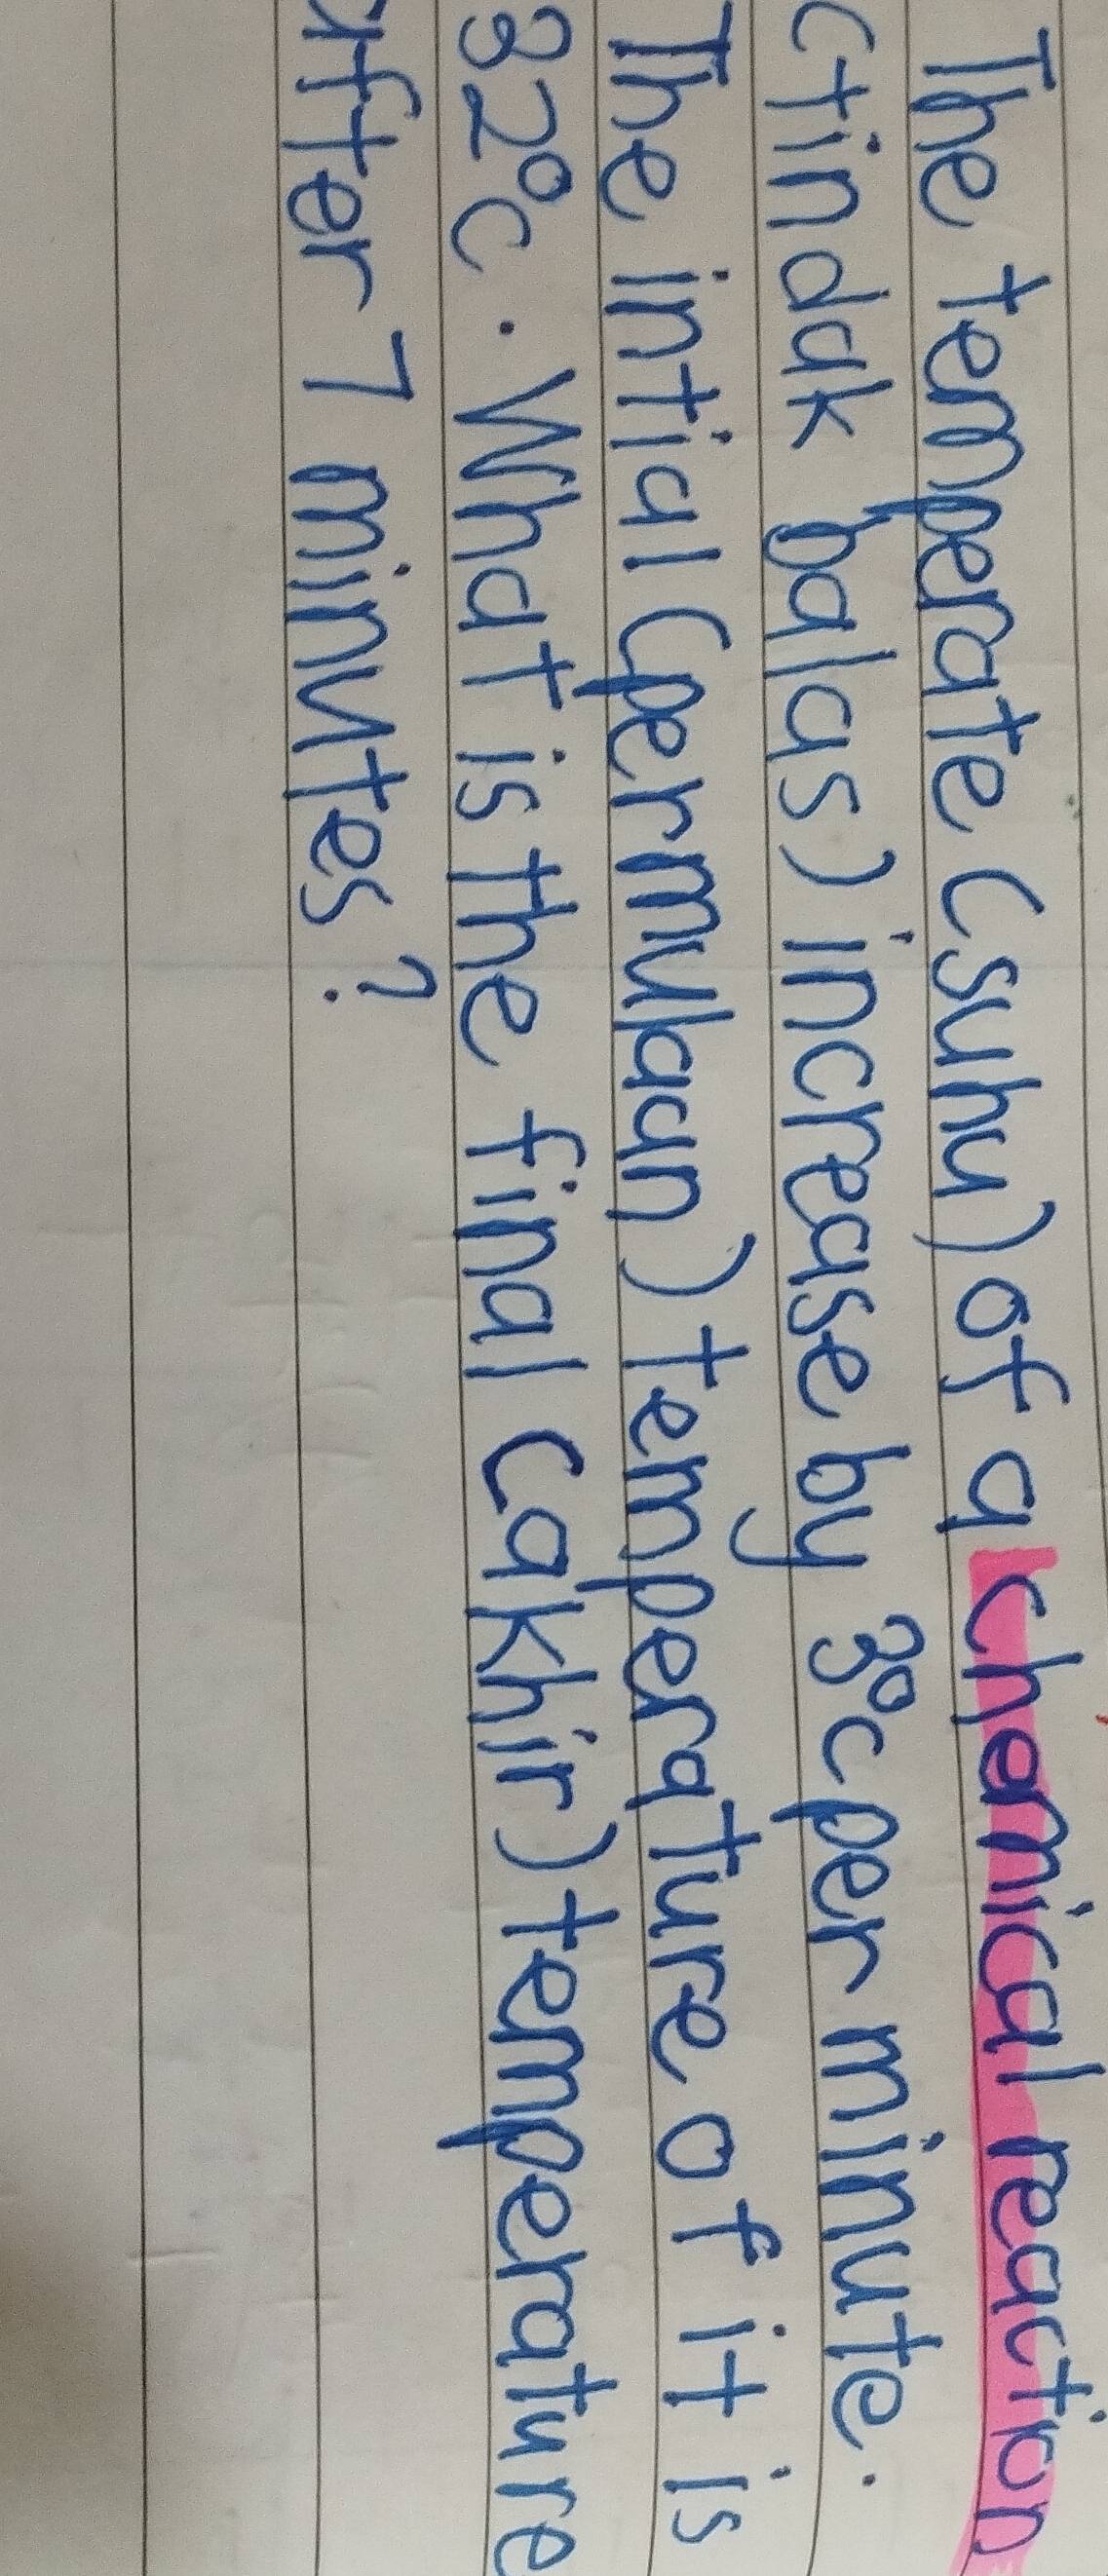 The temperate (suhu) of a chemical reaction
(tindak balas) increase by 3°c per minute.
The intial (permulaan) temperature of it is
32°c. What is the final (akhir) temperature
after 7 minutes?